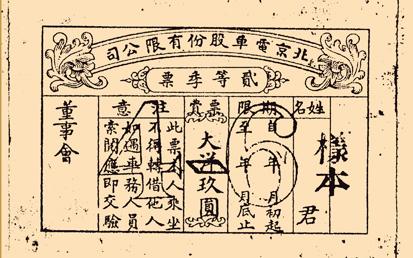 北京電車股份有限公司
貳等季票
姓名
君
樣本
期限
自 年 月初起
至 年 月底止
票賞
大洋玖圓
注意
此票本人乘坐
不得轉借他人
如遇車務人員
索閱應即交驗
董事會